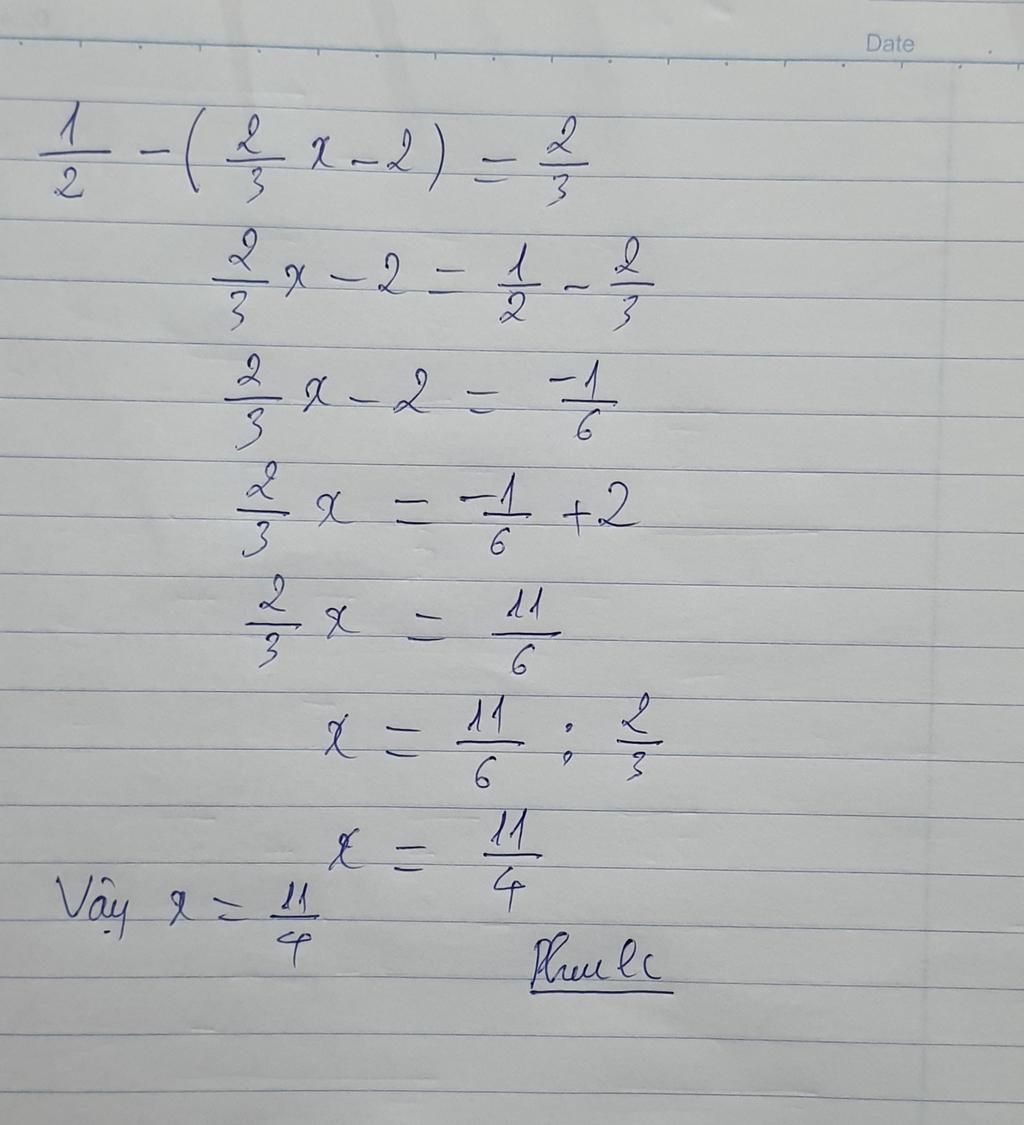 Date
1/2 - (2/3 x - 2) = 2/3
2/3 x - 2 = 1/2 - 2/3
2/3 x - 2 = -1/6
2/3 x = -1/6 + 2
2/3 x = 11/6
x = 11/6 : 2/3
x = 11/4
Vậy x = 11/4